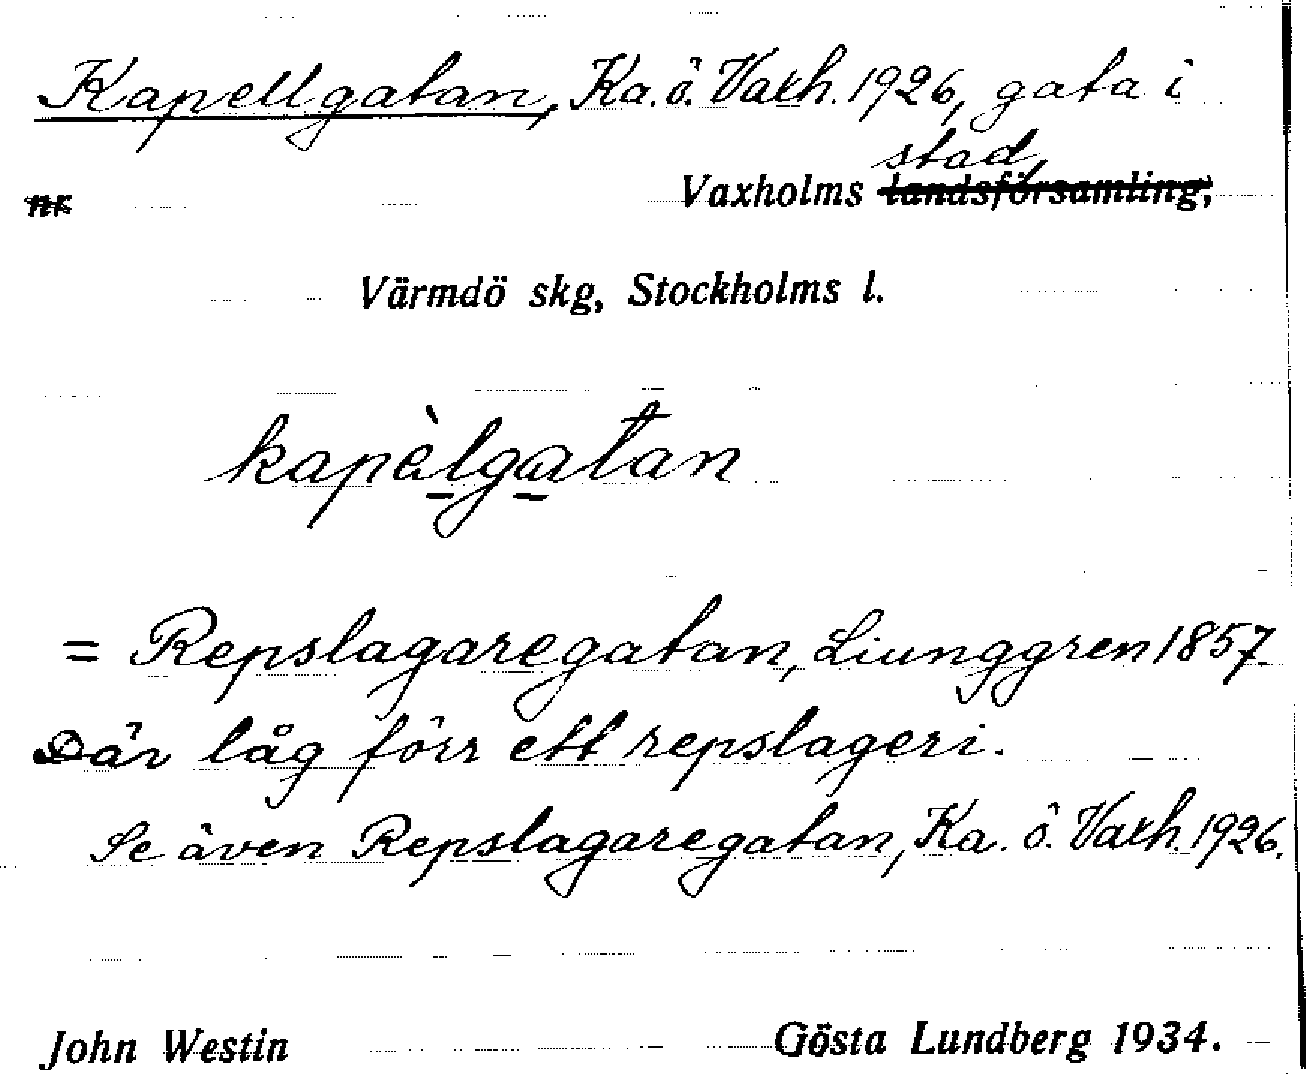 Kapellgatan, Ka. ö. Vaxh. 1926, gata i
stad,
nr Vaxholms landsförsamling,
Värmdö skg, Stockholms l.
kapèlgatan
= Repslagaregatan, Liunggren 1857.
Där låg förr ett repslageri.
Se även Repslagaregatan, Ka. ö. Vaxh. 1926.
John Westin Gösta Lundberg 1934.